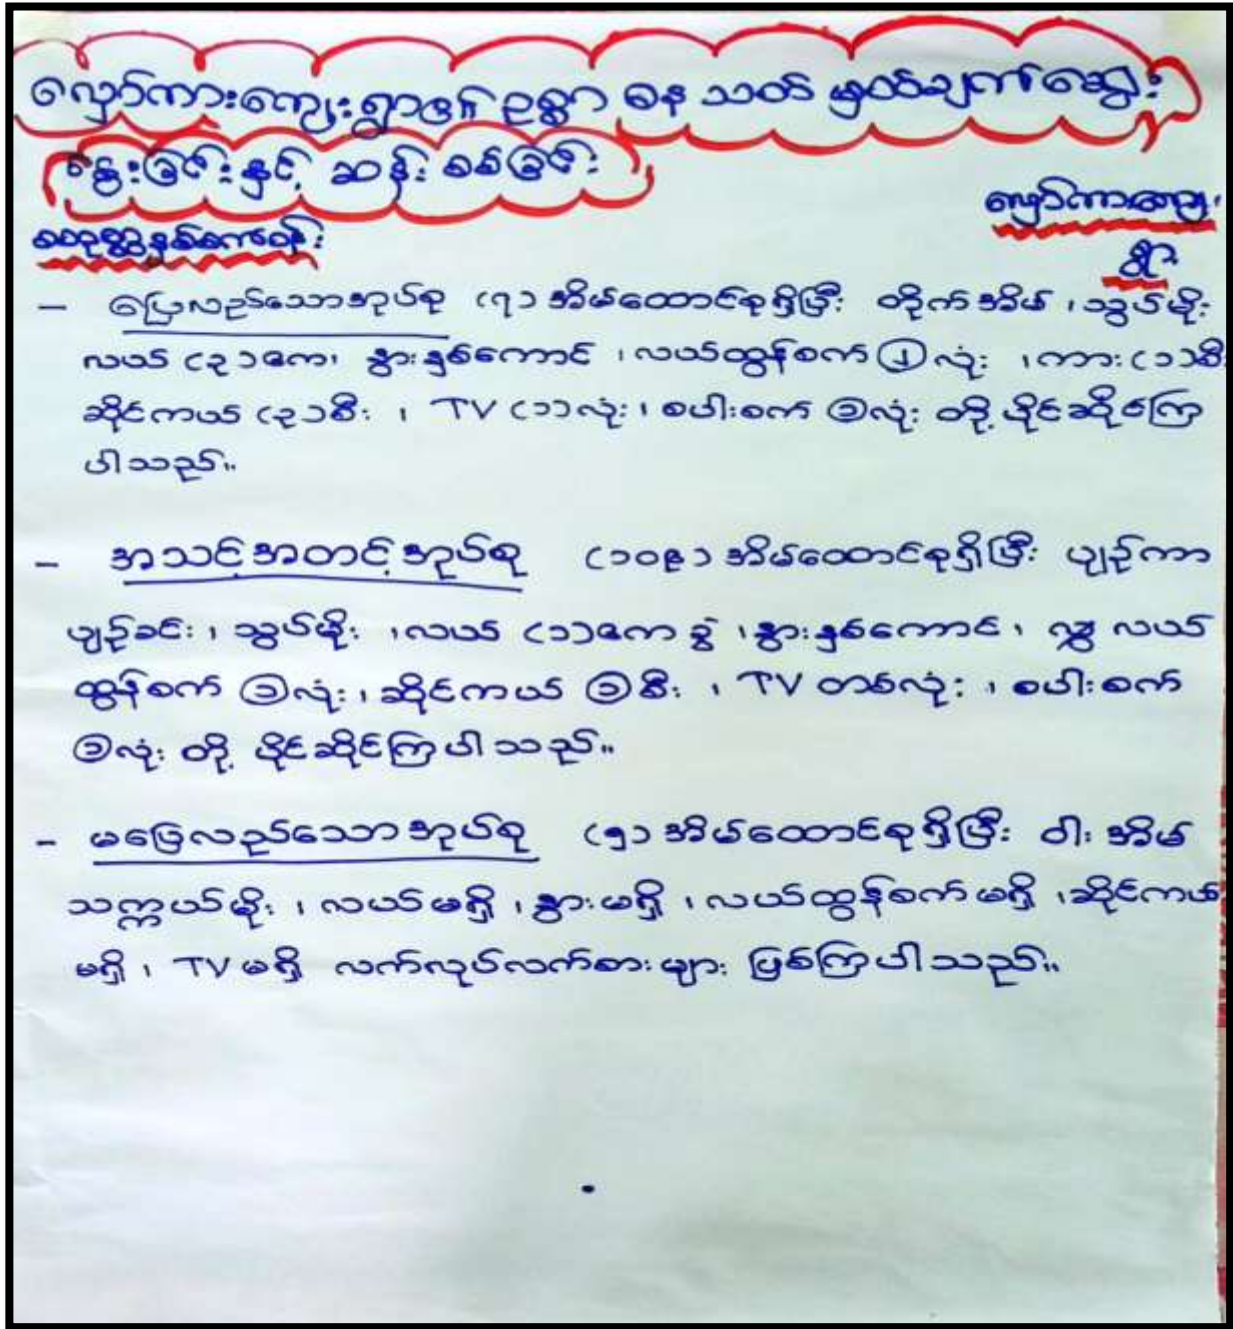 လျှော်ကားကျေးရွာ၏ ဥစ္စာ ဓန သတ် မှတ်ချက်ဆွေး
နွေးခြင်းနှင့် ဆန်း စစ်ခြင်း
လျှော်ကားကျေး
ရွာ
စတုတ္ထနှစ်စက်ဝန်း
- ပြေလည်သောအုပ်စု (၇) အိမ်ထောင်စုရှိပြီး တိုက်အိမ် ၊ သွပ်မိုး
လယ် (၃) ဧက၊ နွားနှစ်ကောင် ၊ လယ်ထွန်စက် ① လုံး ၊ ကား (၁) စီး
ဆိုင်ကယ် (၃) စီး ၊ TV (၁) လုံး ၊ စပါးစက် ① လုံး တို့ ပိုင်ဆိုင်ကြ
ပါသည်။
- အသင့်အတင့်အုပ်စု (၁၀၉) အိမ်ထောင်စုရှိပြီး ပျဉ်ကာ
ပျဉ်ခင်း ၊ သွပ်မိုး ၊ လယ် (၁) ဧက ခွဲ ၊ နွားနှစ်ကောင် ၊ လယ်
ထွန်စက် ① လုံး ၊ ဆိုင်ကယ် ① စီး ၊ TV တစ်လုံး ၊ စပါးစက်
① လုံး တို့ ပိုင်ဆိုင်ကြပါသည်။
- မပြေလည်သောအုပ်စု (၅) အိမ်ထောင်စုရှိပြီး ဝါး အိမ်
သက္ကယ်မိုး ၊ လယ်မရှိ ၊ နွားမရှိ ၊ လယ်ထွန်စက် မရှိ ၊ ဆိုင်ကယ်
မရှိ ၊ TV မရှိ လက်လုပ်လက်စားများ ဖြစ်ကြပါသည်။